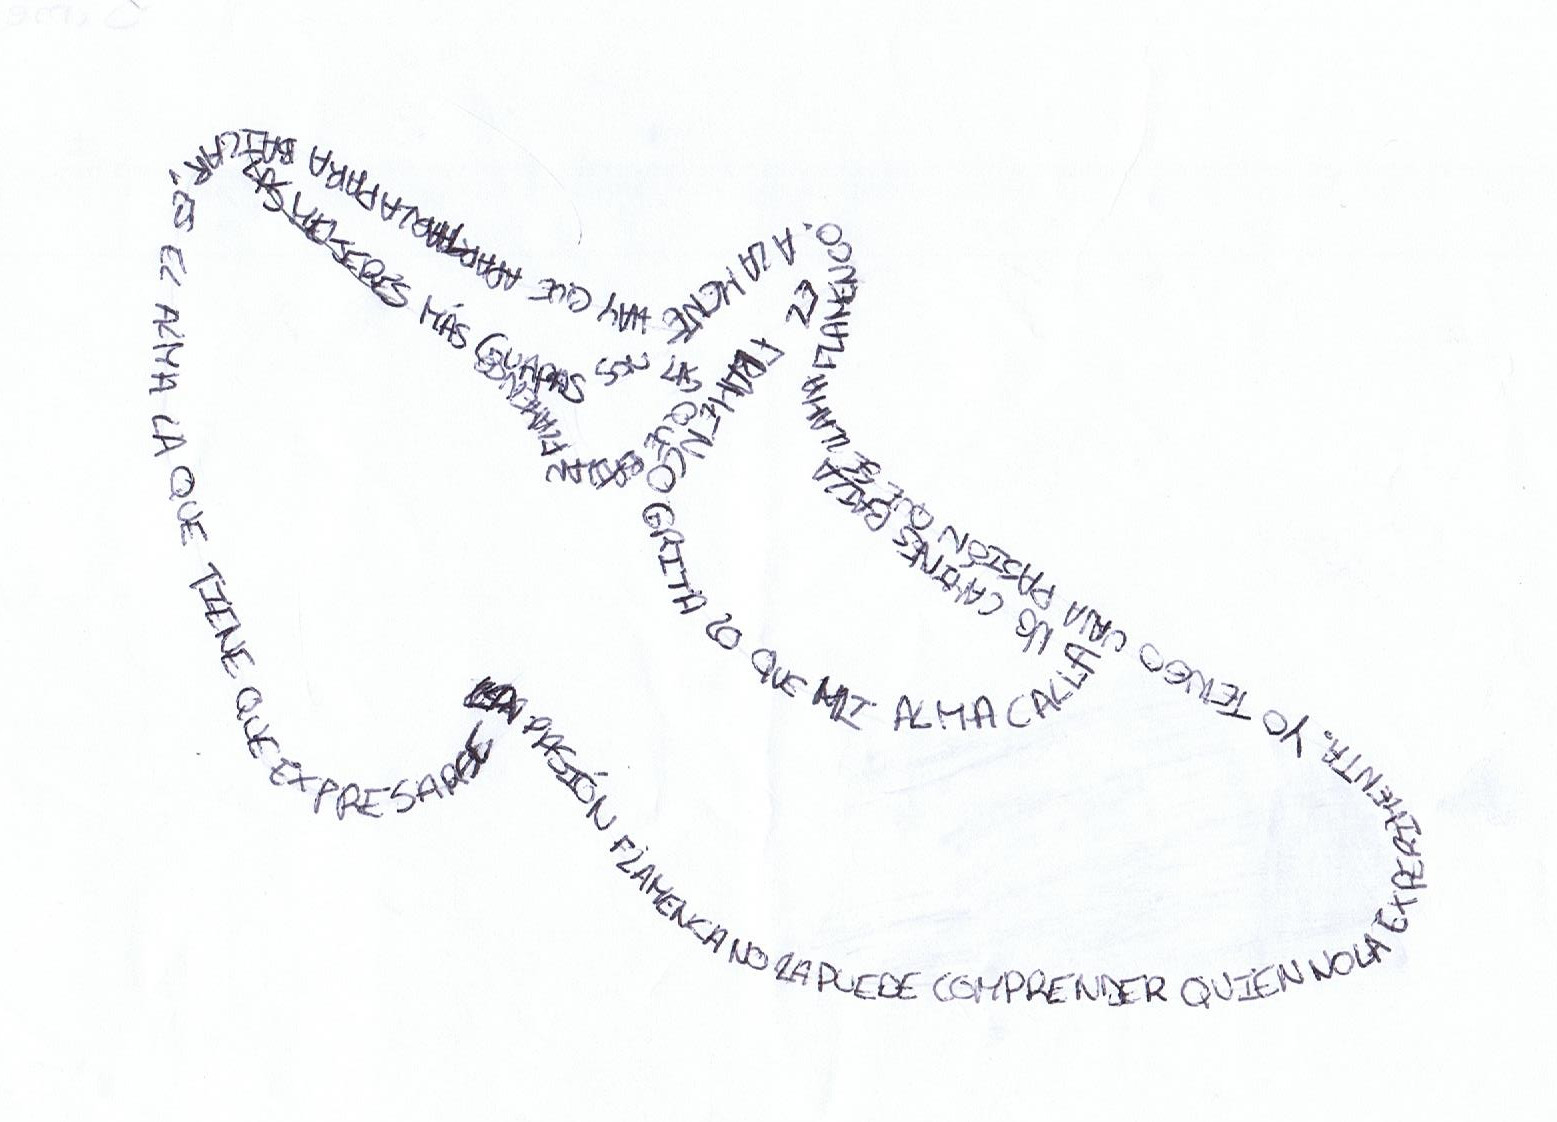 A LA MENTE HAY QUE APARTARLA PARA BAILAR. ES EL ALMA LA QUE TIENE QUE EXPRESARSE
LA PASIÓN FLAMENCA NO LA PUEDE COMPRENDER QUIEN NO LA EXPERIMENTA. YO TENGO UNA PASIÓN QUE SE LLAMA FLAMENCO.
EL FLAMENCO GRITA LO QUE MI ALMA CALLA
NO CAMINES BAILA
LAS MUJERES MÁS GUAPAS SON LAS QUE BAILAN FLAMENCO